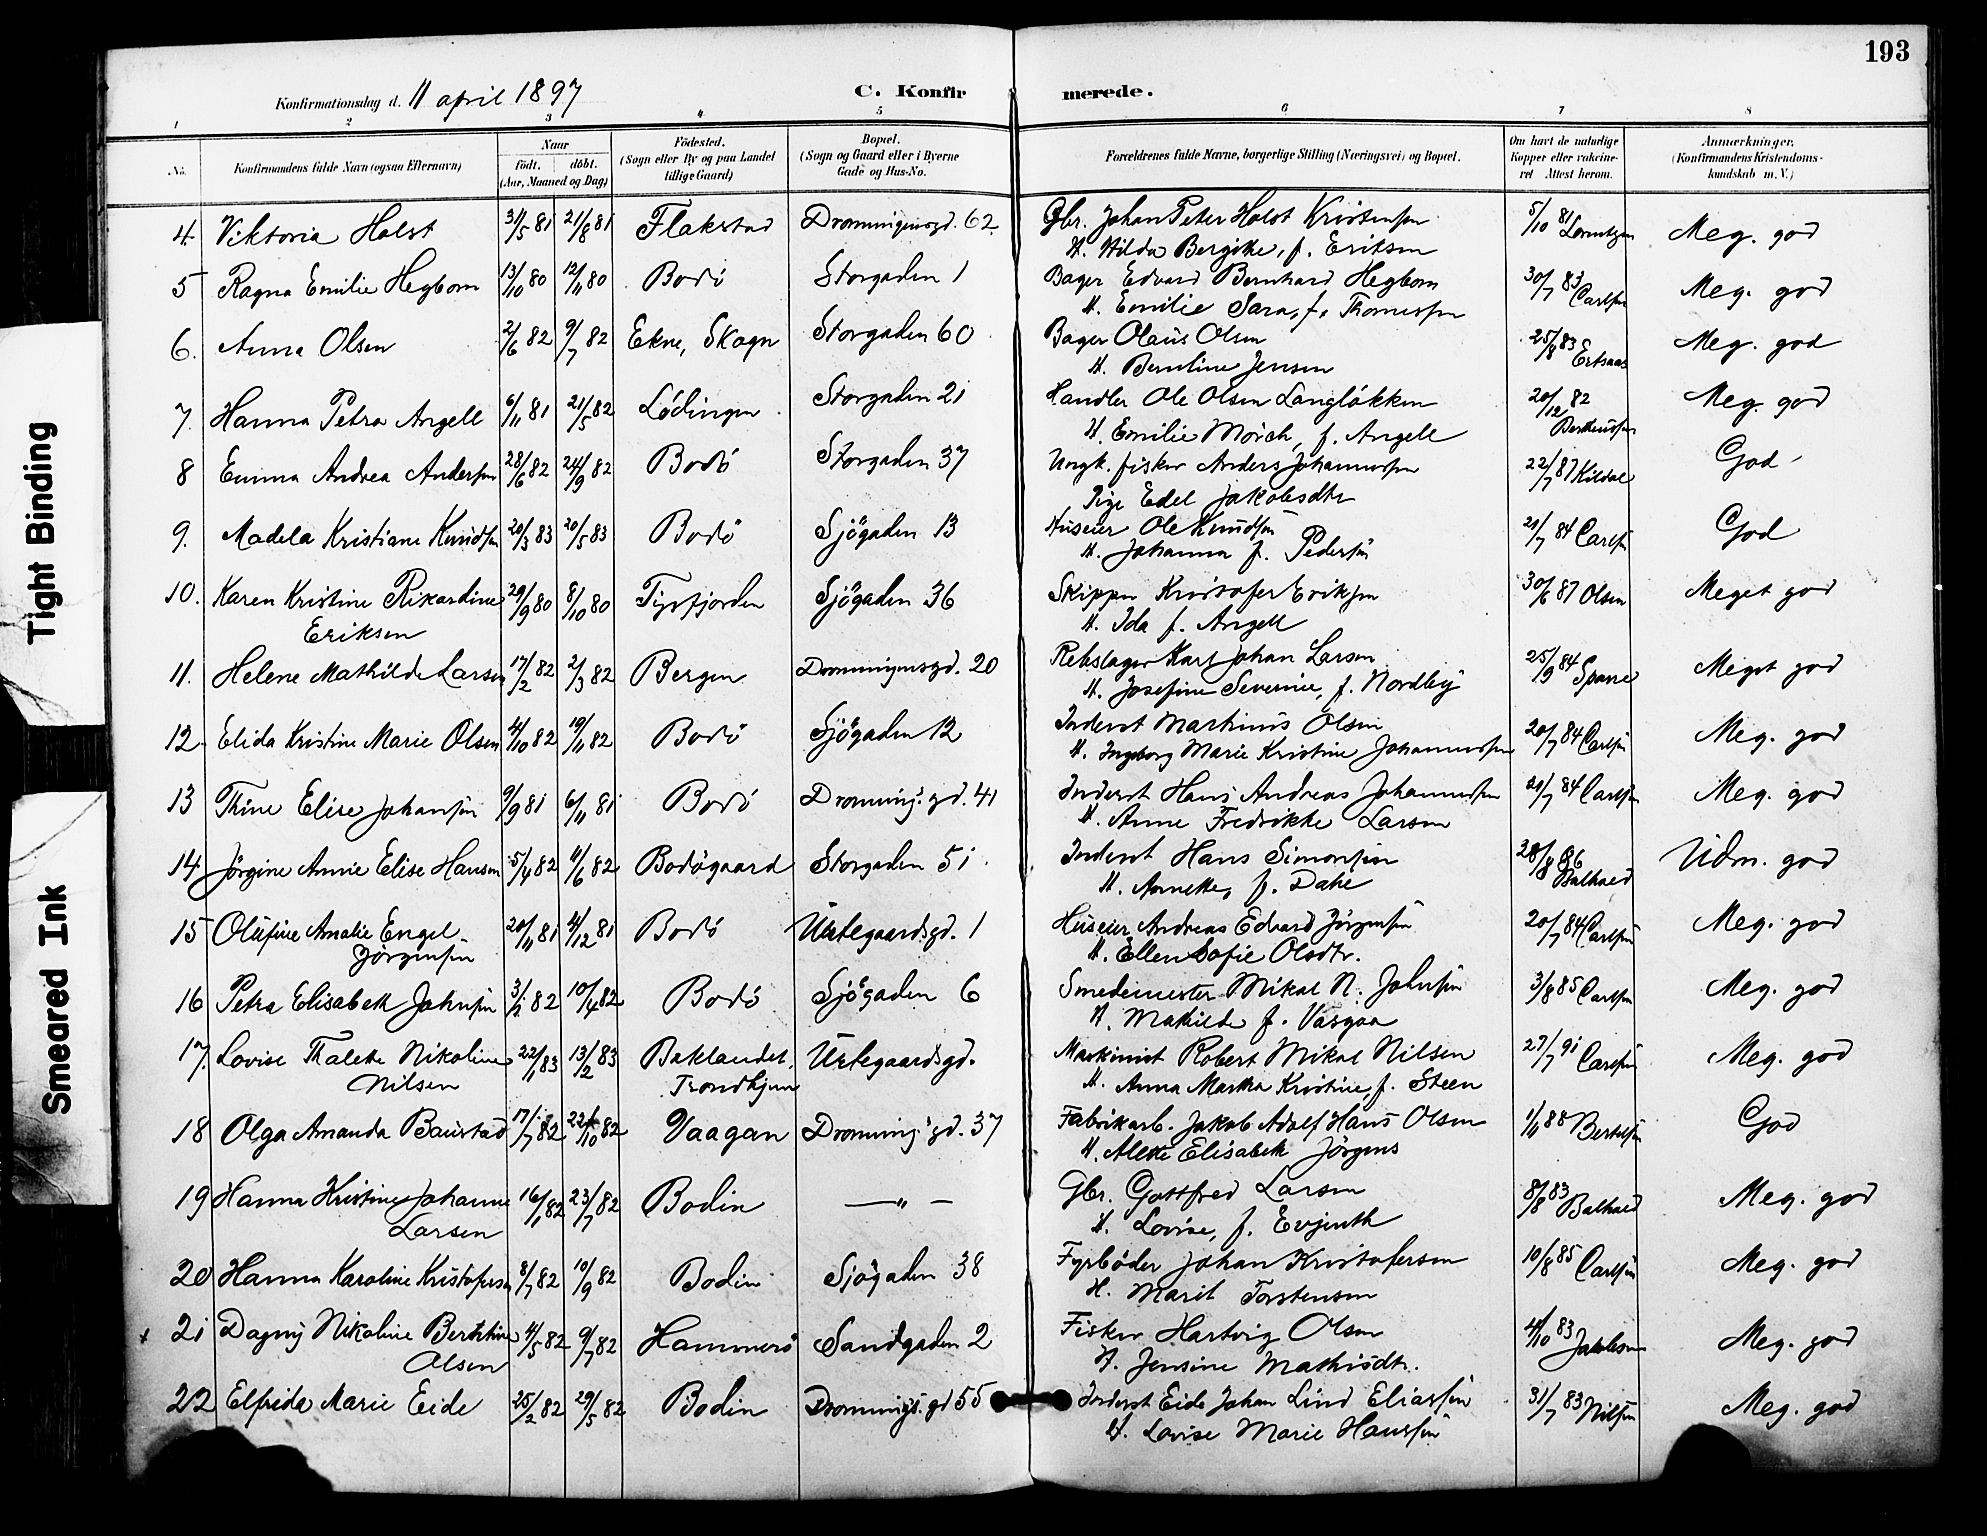 193
Konfirmationsdag d. 11 april 1897
C. Konfirmerede.
1 2 3 4 5 6 7 8
No. Konfirmandens fulde Navn (ogsaa Efternavn) Naar født. døbt. (Aar, Maaned og Dag) Fødested. (Sogn eller By og paa Landet tillige Gaard) Bopæl. (Sogn og Gaard eller i Byerne Gade og Hus-No. Forældrenes fulde Navne, borgerlige Stilling (Næringsvei) og Bopæl. Om havt de naturlige Kopper eller vakcineret. Attest herom. Anmærkninger. (Konfirmandens Kristendomskundskab m. V.)
4. Viktoria Holst 31/5 81 21/8 81 Flakstad Dronningensgd. 62. Gbr. Johan Peter Holst Kristensen 5/10 81 Lorentzen Meg. god
H. Hilda Bergitte, f. Eriksen
5 Ragna Emilie Hegbom 13/10 80 12/11 80 Bodö Storgaden 1 Bager Edvard Bernhard Hegbom 30/7 83 Carlsen Meg. god
H. Emilie Sara, f. Thomessen
6. Anna Olsen 2/6 82 9/7 82 Ekne, Skogn Storgaden 60 Bager Olaus Olsen 25/8 83 Ertsaas Meg. god
H. Berntine Jensen
7. Hanna Petra Angell 6/11 81 21/5 82 Lödingen Storgaden 21 Handler Ole Olsen Langlökken 20/12 82 Meg. god
H. Emilie Mörch, f. Angell
8 Emma Andrea Andersen 28/6 82 24/9 82 Bodö Storgaden 37 Ungk. fisker Anders Johannessen 22/7 87 Kildal God
Pige Edel Jakobsdtr
9. Madela Kristiane Knudsen 20/3 83 20/5 83 Bodö Sjögaden 13 Huseier Ole Knudsen 21/7 84 Carlsen God
H. Johanna f. Pedersen
10. Karen Kristine Rikardine 29/9 80 8/10 80 Tysfjorden Sjögaden 36 Skipper Kristofer Eriksen 30/6 87 Olsen Meget god
Eriksen H. Ida f. Angell
11. Helene Mathilde Larsen 17/2 82 2/3 82 Bergen Dronningensgd. 20 Rebslager Karl Johan Larsen 25/9 84 Sparre Meget god
H. Josefine Severine, f. Nordby
12. Elida Kristine Marie Olsen 4/10 82 19/11 82 Bodö Sjögaden 12 Inderst Martinus Olsen 20/7 84 Carlsen Meg. god
H. Ingeborg Marie Kristine Johannessen
13 Thine Elise Johansen 9/9 81 6/11 81 Bodö Dronning. gd. 41 Inderst Hans Andreas Johannessen 21/7 84 Carlsen Meg. god
H. Anne Fredrikke Larsen
14 Jörgine Annie Elise Hansen 5/4 82 11/6 82 Bodögaard Storgaden 51 Inderst Hans Simonsen 28/8 86 Balhald Udm. god
H. Annette, f. Dahl
15 Olufine Amalie Engel 20/11 81 4/12 81 Bodö Urtegaardsgd. 1 Huseier Andreas Edvard Jörgensen 20/7 84 Carlsen Meg. god
Jörgensen H. Ellen Sofie Olsdtr.
16 Petra Elisabeth Johnsen 3/2 82 10/4 82 Bodö Sjögaden 6 Smedemester Mikal N. Johnsen 3/8 85 Carlsen Meg. god
H. Mathilde f. Vasgaa
17. Lovise Thalette Nikoline 22/1 83 13/2 83 Baklandet, Urtegaardsgd. Maskinist Robert Mikal Nilsen 27/7 91 Carlsen Meg. god
Nilsen Trondhjem H. Anna Martha Kristine, f. Steen
18 Olga Amanda Baustad 17/7 82 22/10 82 Vaagan Dronning. gd. 37 Fabrikarb. Jakob Adolf Hans Olsen 1/11 88 Bertelsen God
H. Alette Elisabeth Jörgens
19 Hanna Kristine Johanne 16/1 82 23/7 82 Bodin — " — Gbr. Gottfred Larsen 8/8 83 Balhald Meg. god
Larsen H. Lovise, f. Evjenth
20 Hanna Karoline Kristofersen 8/7 82 10/9 82 Bodin Sjögaden 38 Fyrböder Johan Kristofersen 10/8 85 Carlsen Meg. god
H. Marit Torstensen
21 Dagny Nikoline Berntine 4/5 82 9/7 82 Hammerö Sandgaden 2 Fisker Hartvig Olsen 4/10 83 Jakobsen Meg. god
Olsen H. Jensine Mathisdtr.
22 Elfrida Marie Eide 25/2 82 29/5 82 Bodin Dronnings. gd 55 Inderst Eide Johan Lind Eliassen 31/7 83 Nilsen Meg. god
H. Lovise Marie Hansen
Tight Binding
Smeared Ink